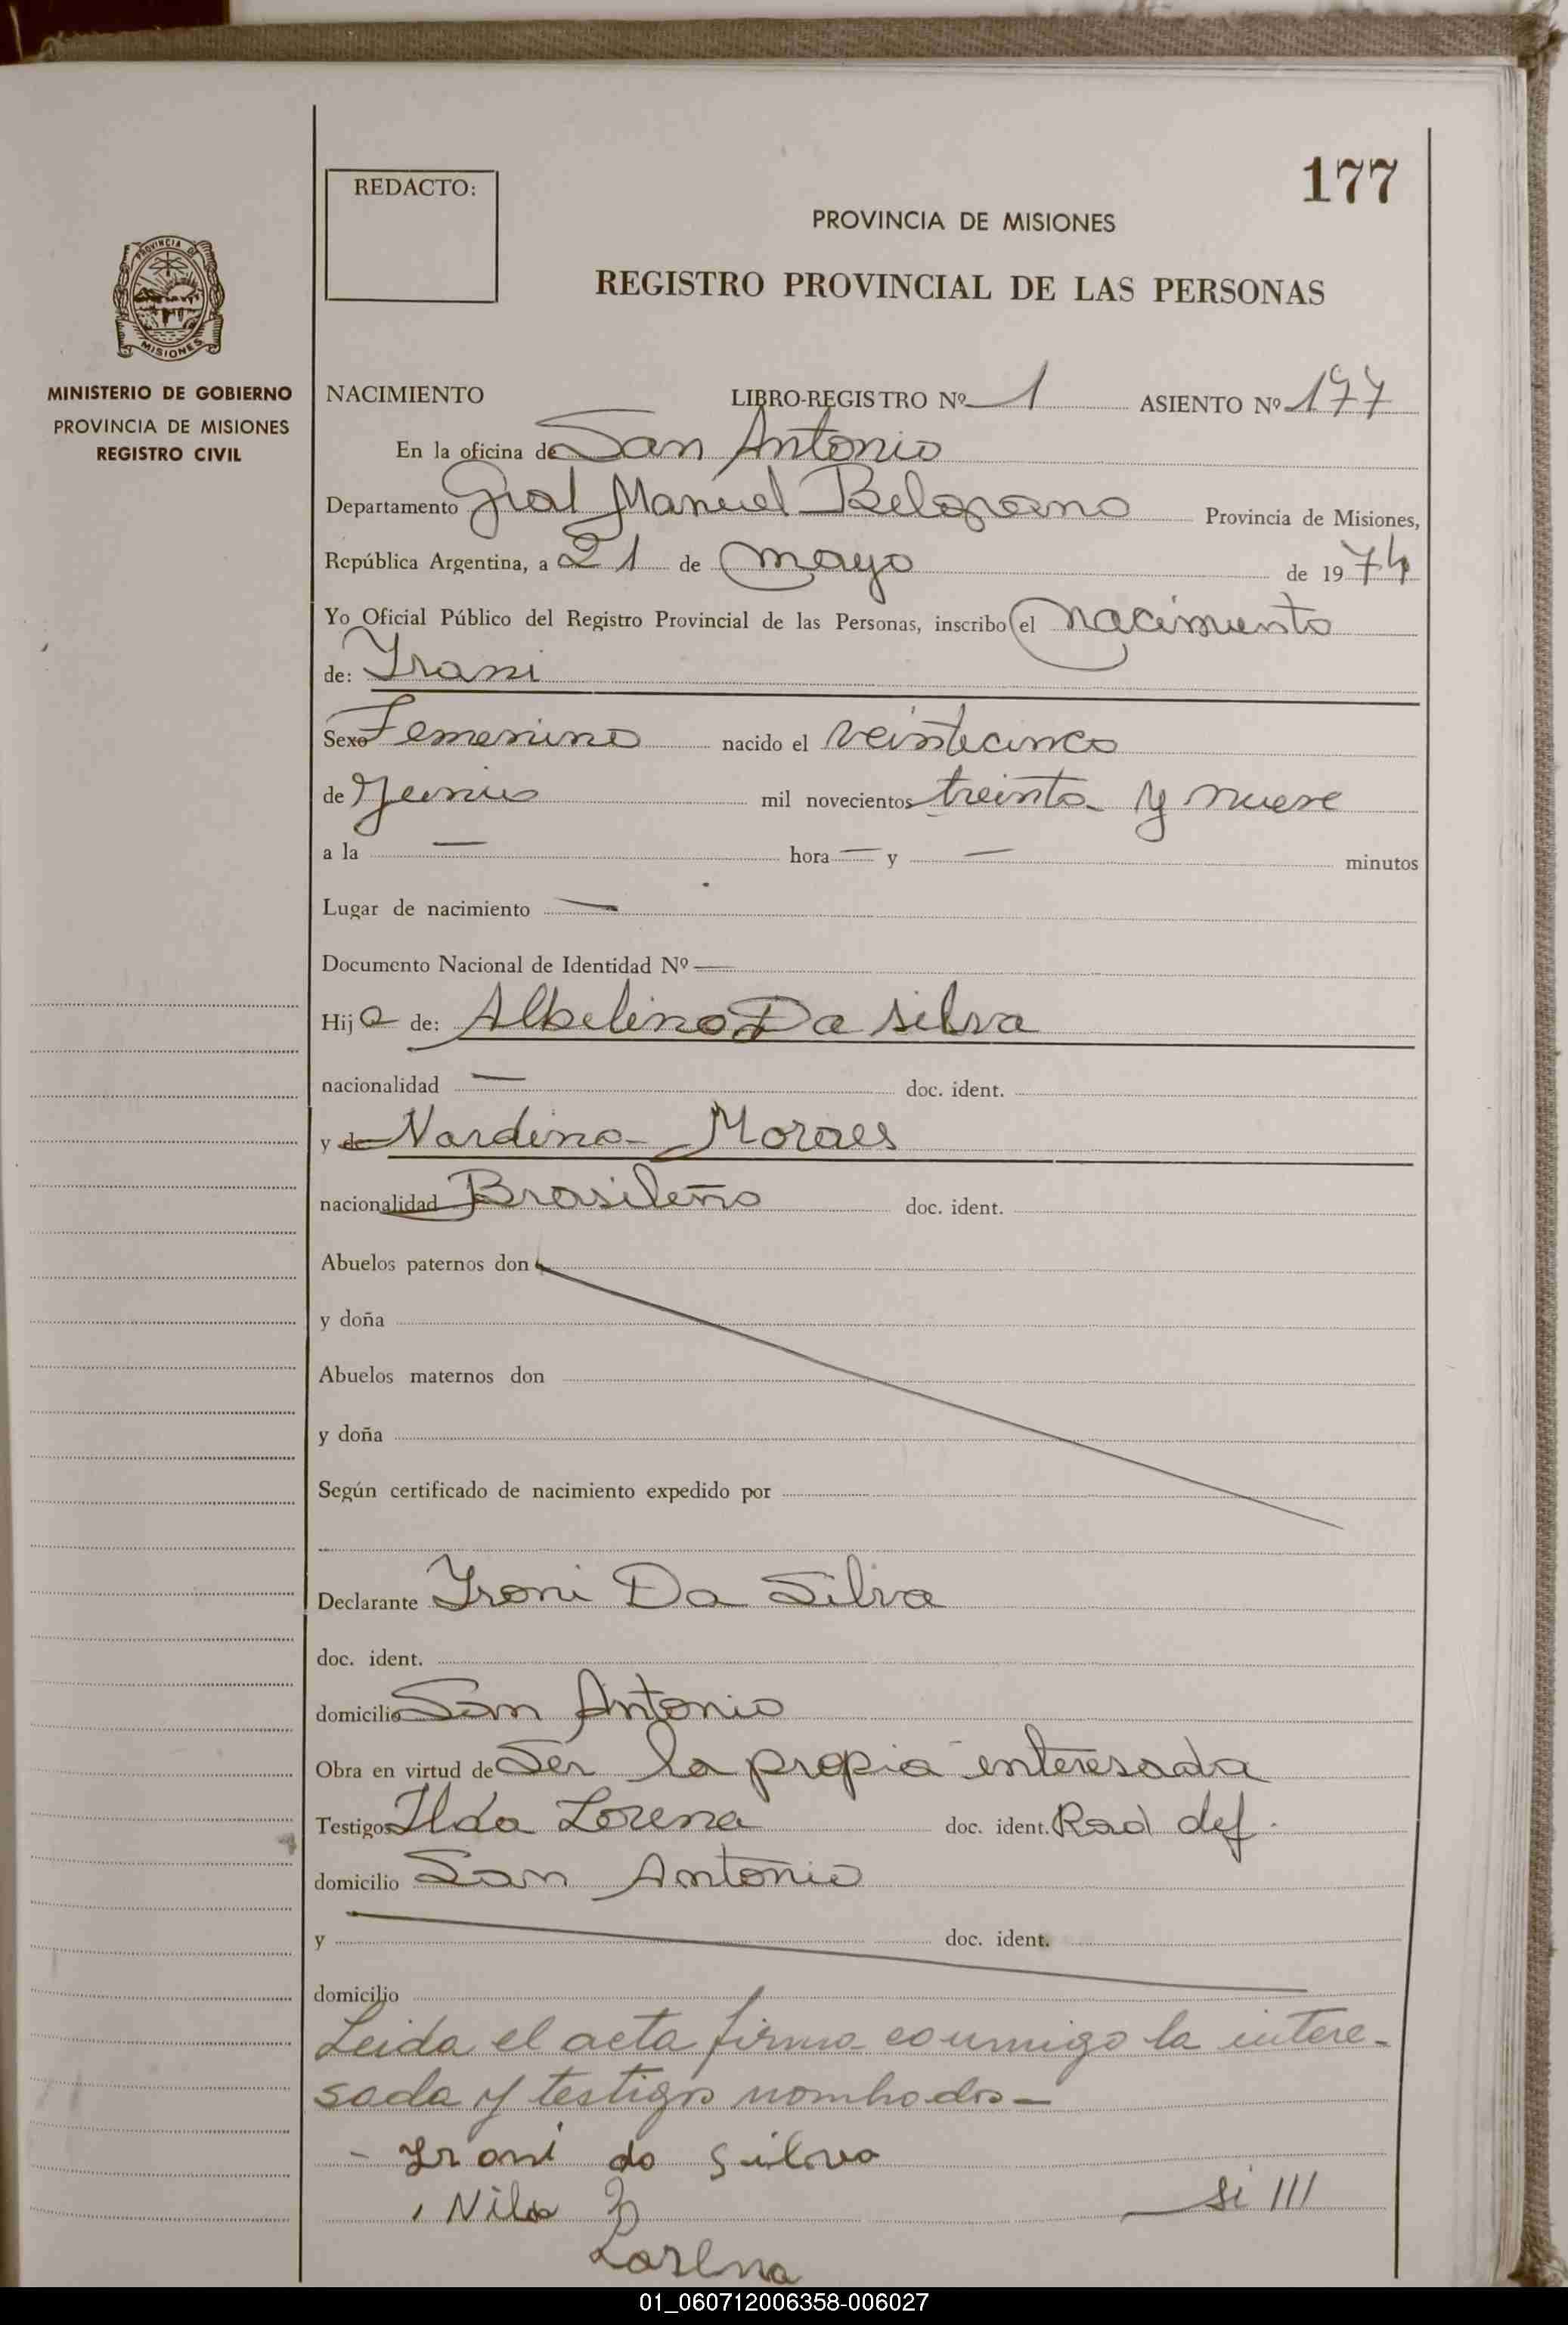 177
REDACTO:
PROVINCIA DE MISIONES
REGISTRO PROVINCIAL DE LAS PERSONAS
PROVINCIA DE
MISIONES
MINISTERIO DE GOBIERNO
PROVINCIA DE MISIONES
REGISTRO CIVIL
NACIMIENTO LIBRO-REGISTRO Nº 1 ASIENTO Nº 177
En la oficina de San Antonio
Departamento Gral Manuel Belgrano Provincia de Misiones,
República Argentina, a 21 de mayo de 1974
Yo Oficial Público del Registro Provincial de las Personas, inscribo el nacimiento
de: Irani
Sexo Femenino nacido el veinticinco
de Junio mil novecientos treinta y nueve
a la — hora — y — minutos
Lugar de nacimiento —
Documento Nacional de Identidad Nº —
Hija de: Albelino Da Silva
nacionalidad — doc. ident.
y de Nardina Moraes
nacionalidad Brasileña doc. ident.
Abuelos paternos don
y doña
Abuelos maternos don
y doña
Según certificado de nacimiento expedido por
Declarante Irani Da Silva
doc. ident.
domicilio San Antonio
Obra en virtud de Ser la propia interesada
Testigos Ilda Lorena doc. ident. Rad def.
domicilio San Antonio
y doc. ident.
domicilio
Leida el acta firma conmigo la intere-
sada y testigos nombrados—
- Irani da Silva
Nilda
si III
Lorena
01_060712006358-006027